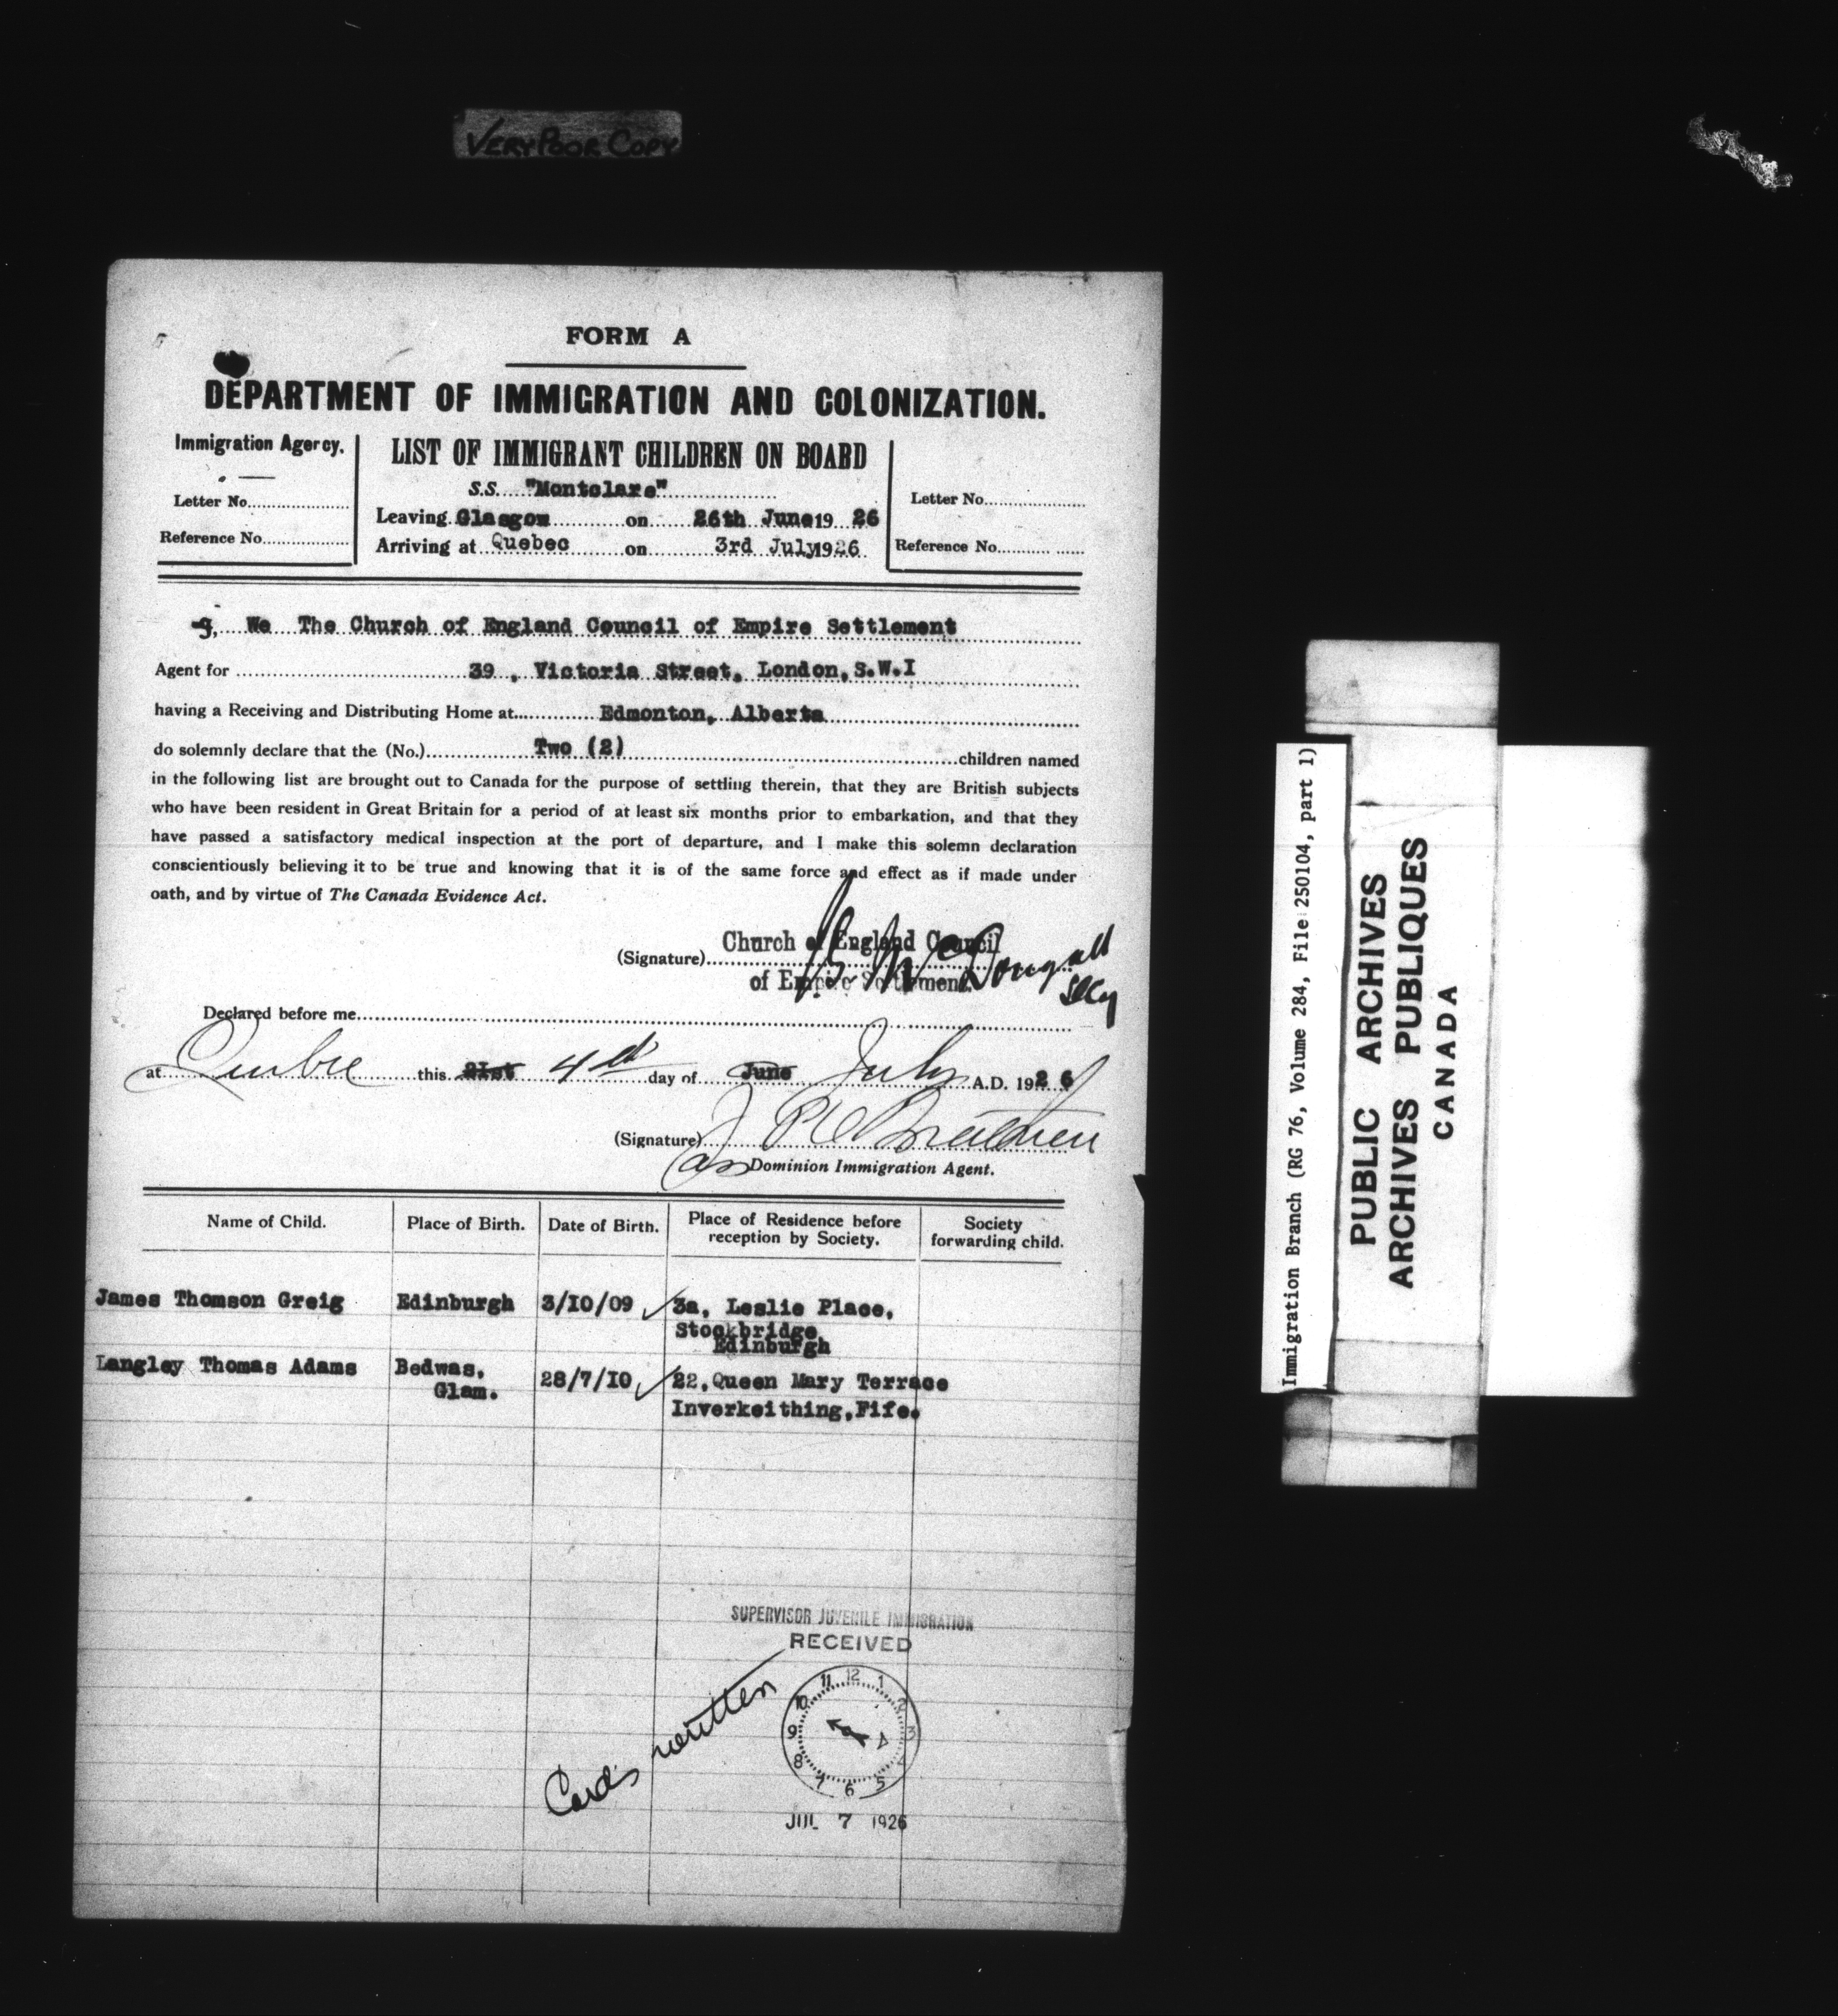 VERY POOR COPY
FORM A
DEPARTMENT OF IMMIGRATION AND COLONIZATION.
Immigration Agency.
Letter No.
Reference No.
LIST OF IMMIGRANT CHILDREN ON BOARD
S.S. "Montclare"
Leaving Glasgow on 26th June 19 26
Arriving at Quebec on 3rd July 1926
Letter No.
Reference No.
I, We The Church of England Council of Empire Settlement
Agent for 39, Victoria Street, London, S.W.I
having a Receiving and Distributing Home at Edmonton, Alberta
do solemnly declare that the (No.) Two (2) children named
in the following list are brought out to Canada for the purpose of settling therein, that they are British subjects
who have been resident in Great Britain for a period of at least six months prior to embarkation, and that they
have passed a satisfactory medical inspection at the port of departure, and I make this solemn declaration
conscientiously believing it to be true and knowing that it is of the same force and effect as if made under
oath, and by virtue of The Canada Evidence Act.
(Signature) Church of England Council
of Empire Settlement.
McDougall
Secy
Declared before me
at Quebec this 21st 4th day of June July A.D. 1926
(Signature)
Dominion Immigration Agent.
Name of Child. Place of Birth. Date of Birth. Place of Residence before reception by Society. Society forwarding child.
James Thomson Greig Edinburgh 3/I0/09 3a, Leslie Place,
Stockbridge
Edinburgh
Langley Thomas Adams Bedwas, 28/7/I0 22, Queen Mary Terrace
Glam. Inverkeithing, Fife.
SUPERVISOR JUVENILE IMMIGRATION
RECEIVED
12 1 2 3 4 5 6 7 8 9 10 11
JUL 7 1926
Cards written
Immigration Branch (RG 76, Volume 284, File 250104, part 1)
PUBLIC ARCHIVES
ARCHIVES PUBLIQUES
CANADA